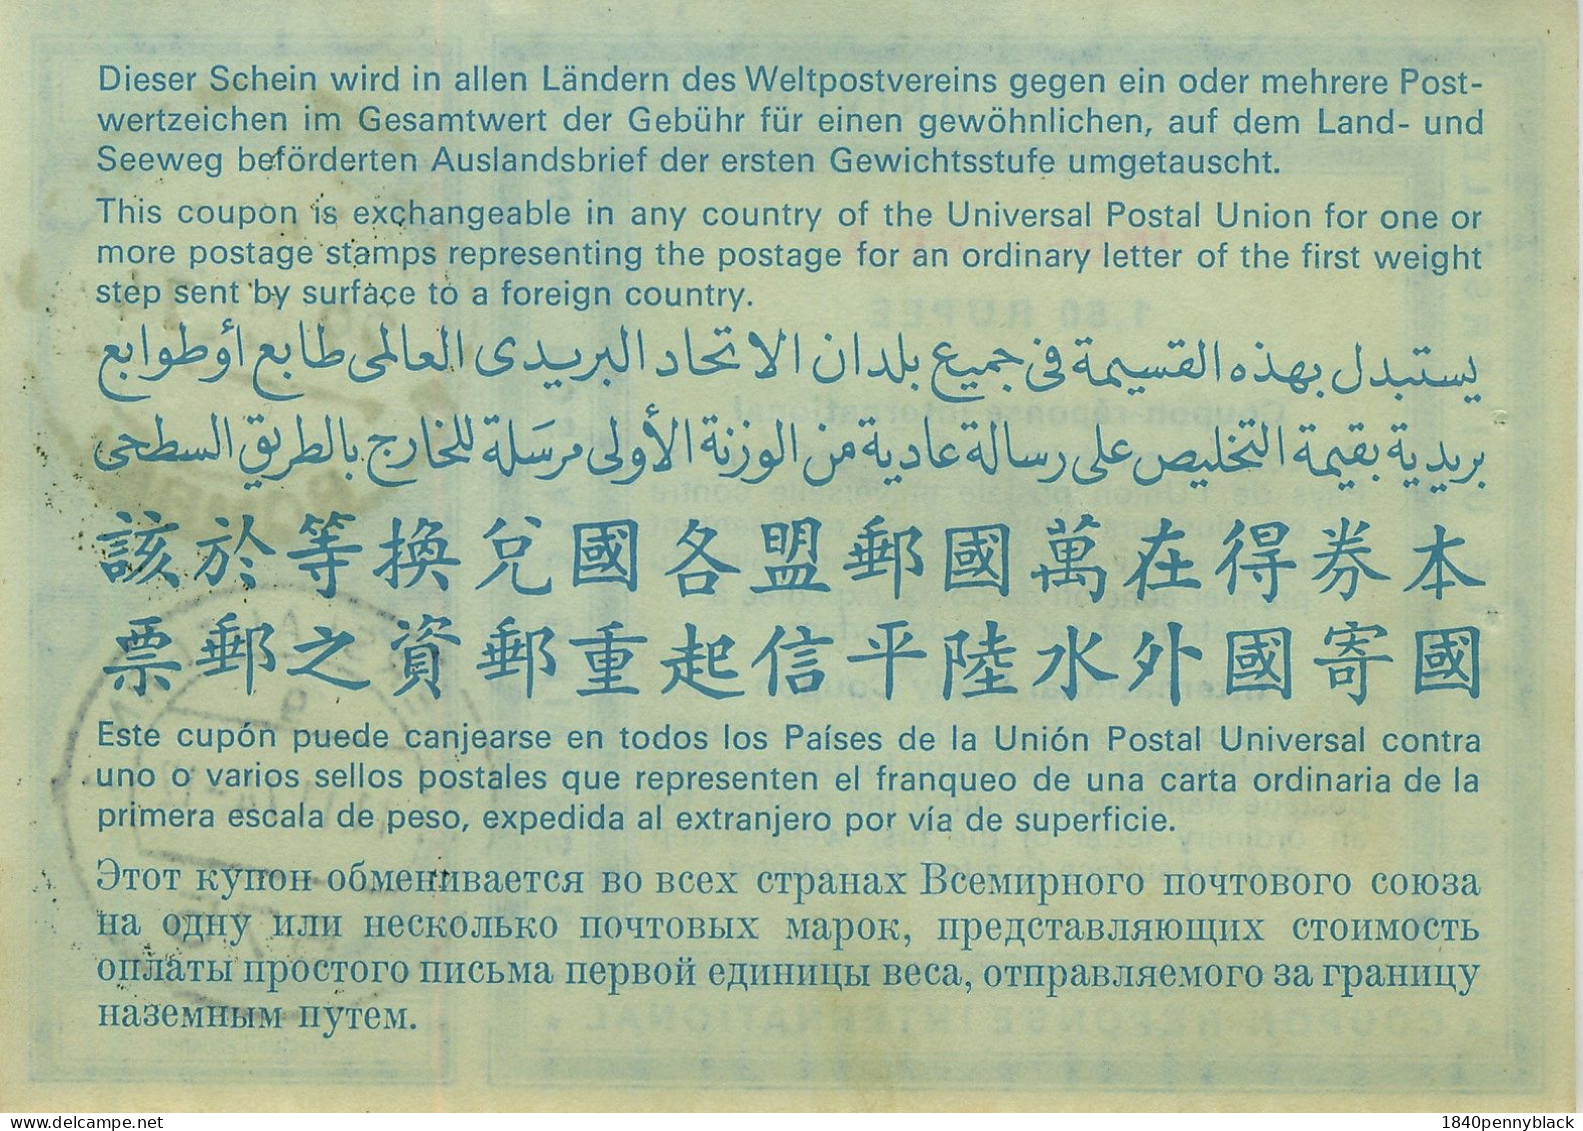 Dieser Schein wird in allen Ländern des Weltpostvereins gegen ein oder mehrere Post-
wertzeichen im Gesamtwert der Gebühr für einen gewöhnlichen, auf dem Land- und
Seeweg beförderten Auslandsbrief der ersten Gewichtsstufe umgetauscht.
This coupon is exchangeable in any country of the Universal Postal Union for one or
more postage stamps representing the postage for an ordinary letter of the first weight
step sent by surface to a foreign country.
يستبدل بهذه القسيمة فى جميع بلدان الاتحاد البريدى العالمى طابع أو طوابع
بريدية بقيمة التخليص على رسالة عادية من الوزنة الأولى مرسَلة للخارج بالطريق السطحى
本券得在萬國郵盟各國兌換等於該
國寄國外水陸平信起重郵資之郵票
Este cupón puede canjearse en todos los Países de la Unión Postal Universal contra
uno o varios sellos postales que representen el franqueo de una carta ordinaria de la
primera escala de peso, expedida al extranjero por vía de superficie.
Этот купон обменивается во всех странах Всемирного почтового союза
на одну или несколько почтовых марок, представляющих стоимость
оплаты простого письма первой единицы веса, отправляемого за границу
наземным путем.
delcampe.net
1840pennyblack